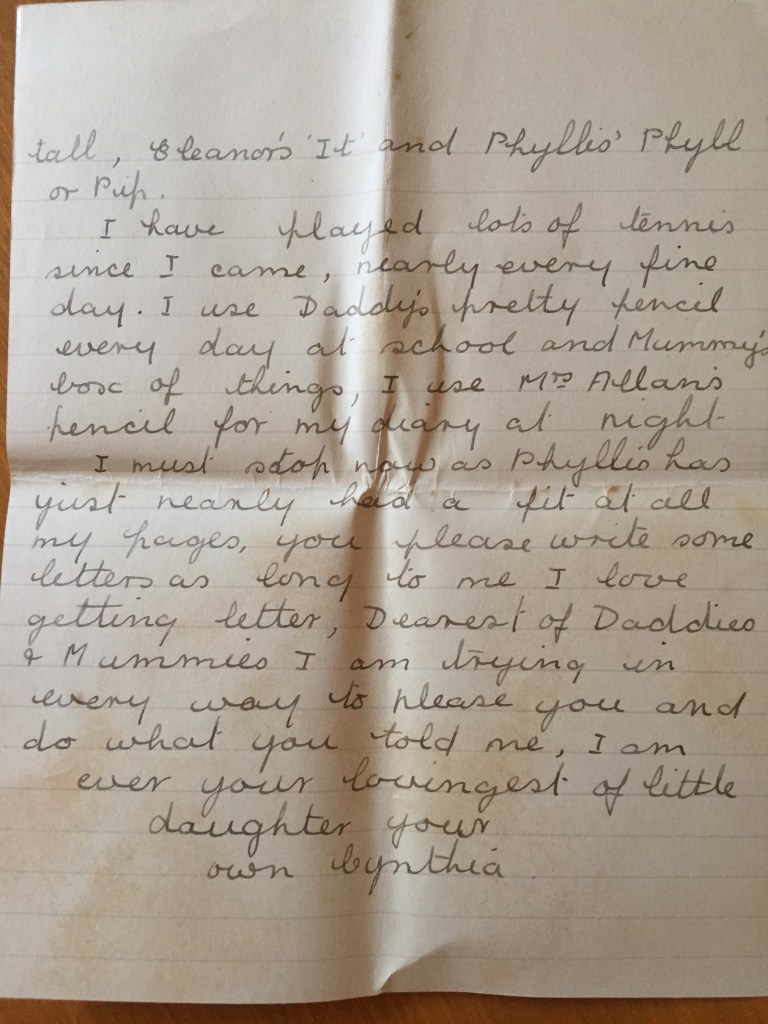 tall, Eleanor's 'It' and Phyllis' Phyll
or Pip.
I have played lots of tennis
since I came, nearly every fine
day. I use Daddy's pretty pencil
every day at school and Mummy's
box of things, I use Mrs Allan's
pencil for my diary at night
I must stop now as Phyllis has
just nearly had a fit at all
my pages, you please write some
letters as long to me I love
getting letter, Dearest of Daddies
& Mummies I am trying in
every way to please you and
do what you told me, I am
ever your lovingest of little
daughter your
own Cynthia.